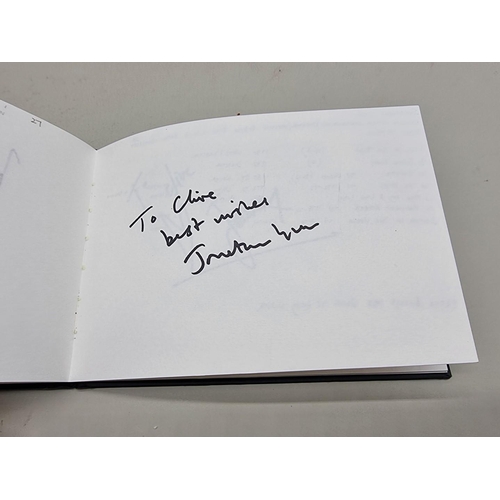 To Clive
best wishes
Jonathan Lynn